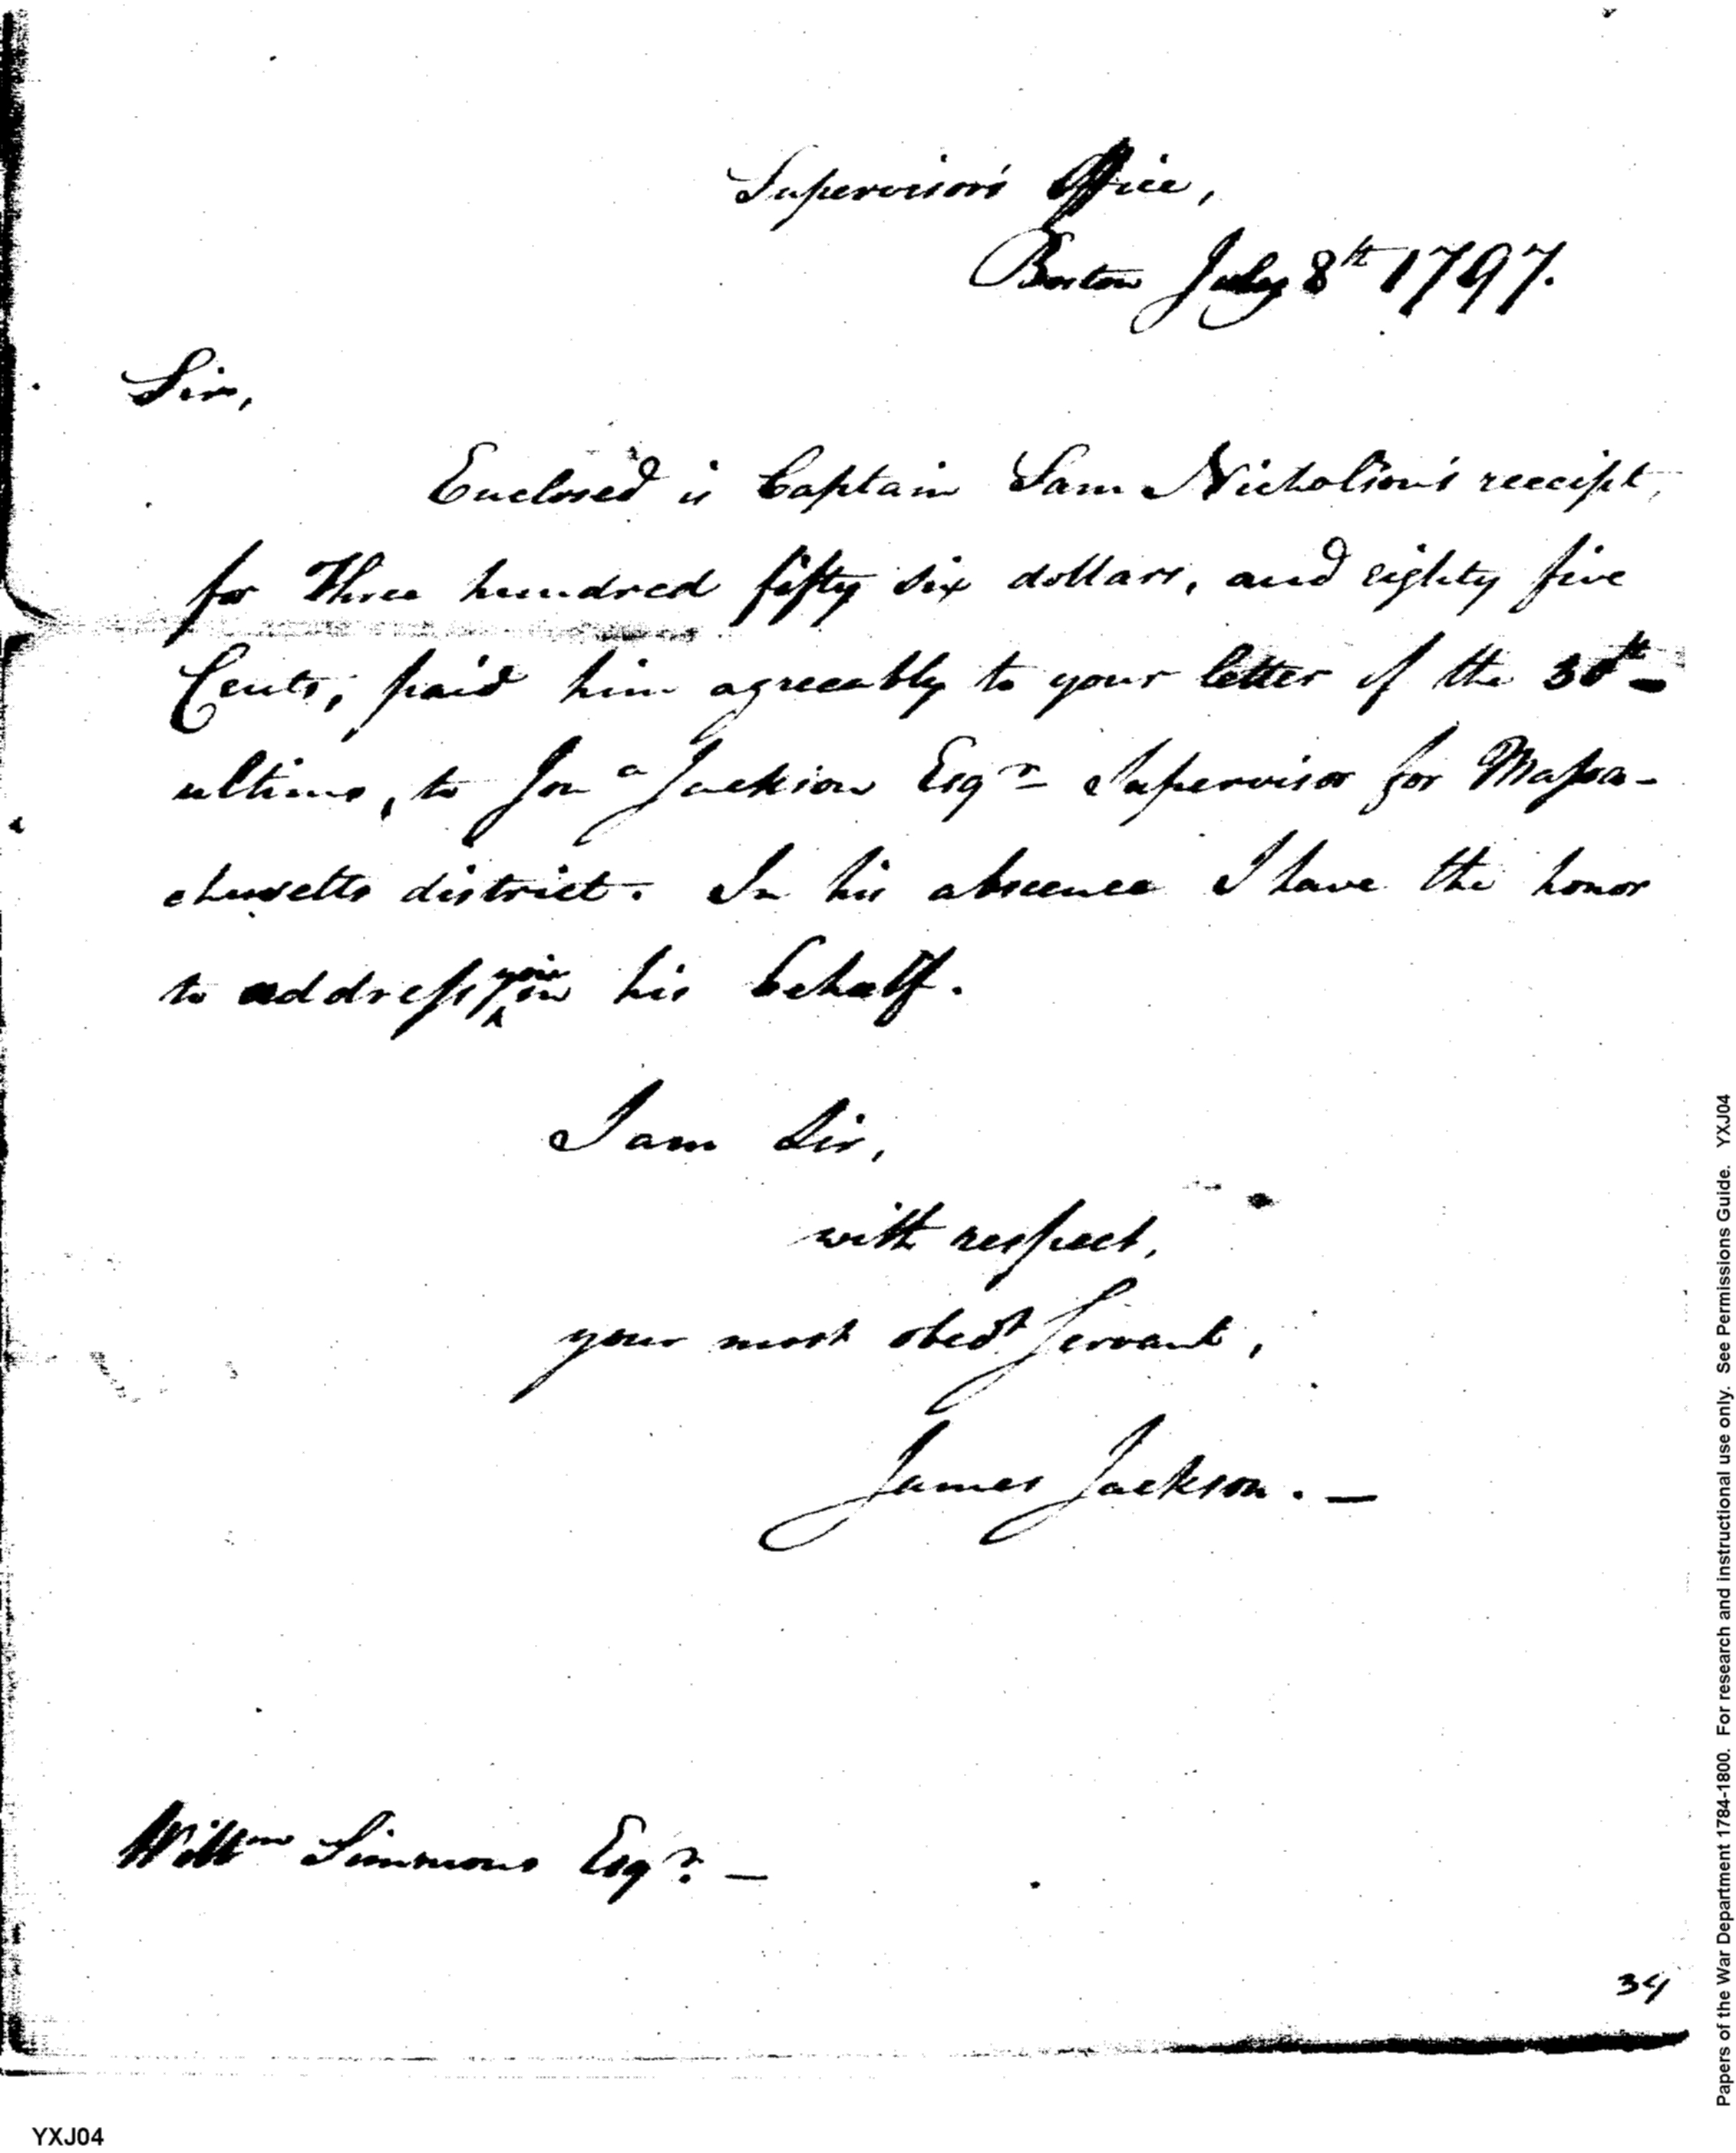 Supervisor's Office,
Boston July 8th 1797.
Sir,
Enclosed is Captain Sam Nicholson's receipt,
for Three hundred fifty six dollars, and eighty five
Cents, paid him agreeably to your letter of the 30th -
ultimo, to Jona Jackson Esqr Supervisor for Massa-
chusetts district. In his absence I have the honor
to address you in his behalf.
I am Sir,
with respect,
your most obedt Servant,
James Jackson. -
Willm Simmons Esqr. -
34
YXJ04
Papers of the War Department 1784-1800. For research and instructional use only. See Permissions Guide. YXJ04